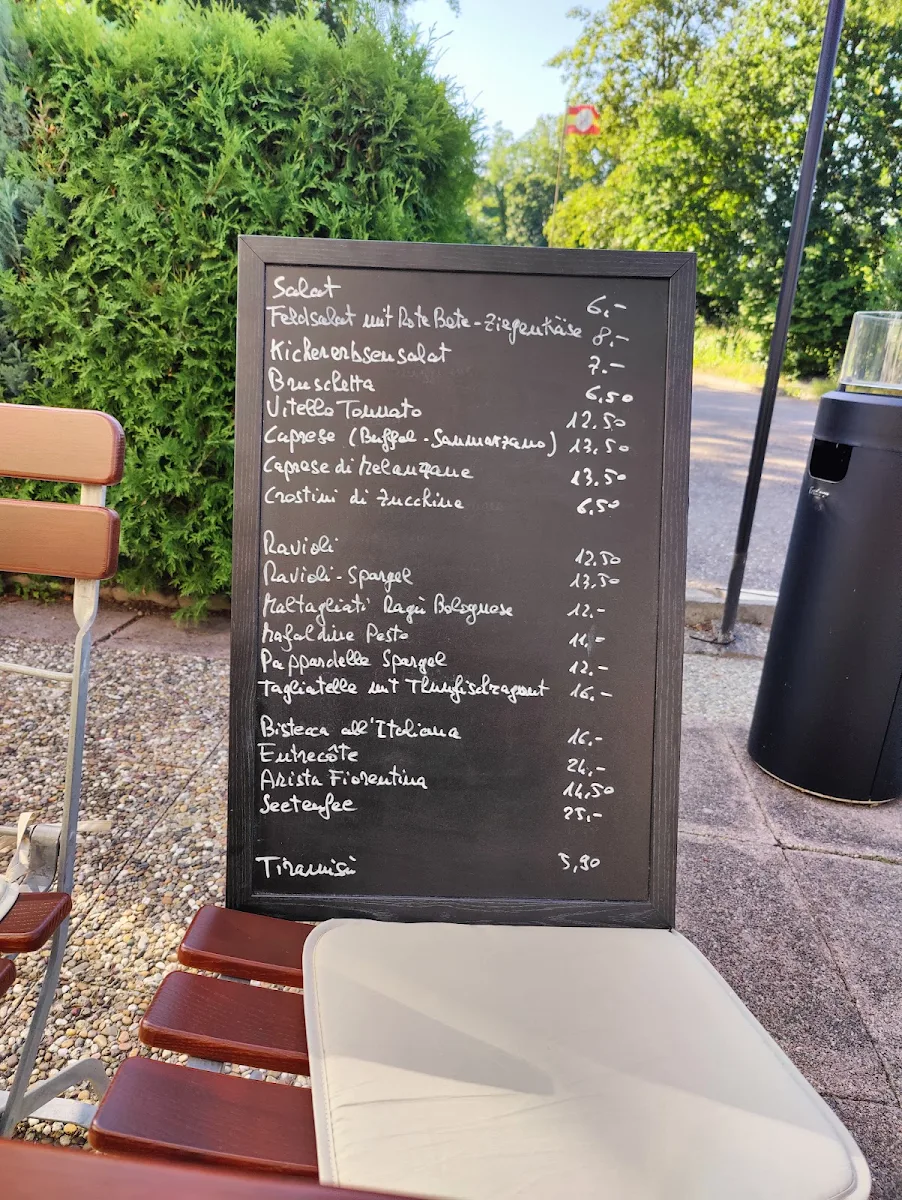 Salat 6,-
Feldsalat mit Rote Bete-Ziegenkäse 8,-
Kichererbsensalat 7.-
Bruschetta 6,50
Vitello Tonnato 12.50
Caprese (Buffel-Sanmarzano) 13,50
Caprese di Melanzane 13.50
Crostini di Zucchine 6,50
Ravioli 12.50
Ravioli-Spargel 13,50
Maltagliati Ragù Bolognese 12.-
Mafaldine Pesto 11,-
Pappardelle Spargel 12.-
Tagliatelle mit Thunfischragout 16,-
Bistecca all'Italiana 16.-
Entrecôte 24,-
Arista Fiorentina 14,50
Seeteufee 25,-
Tiramisù 5,90